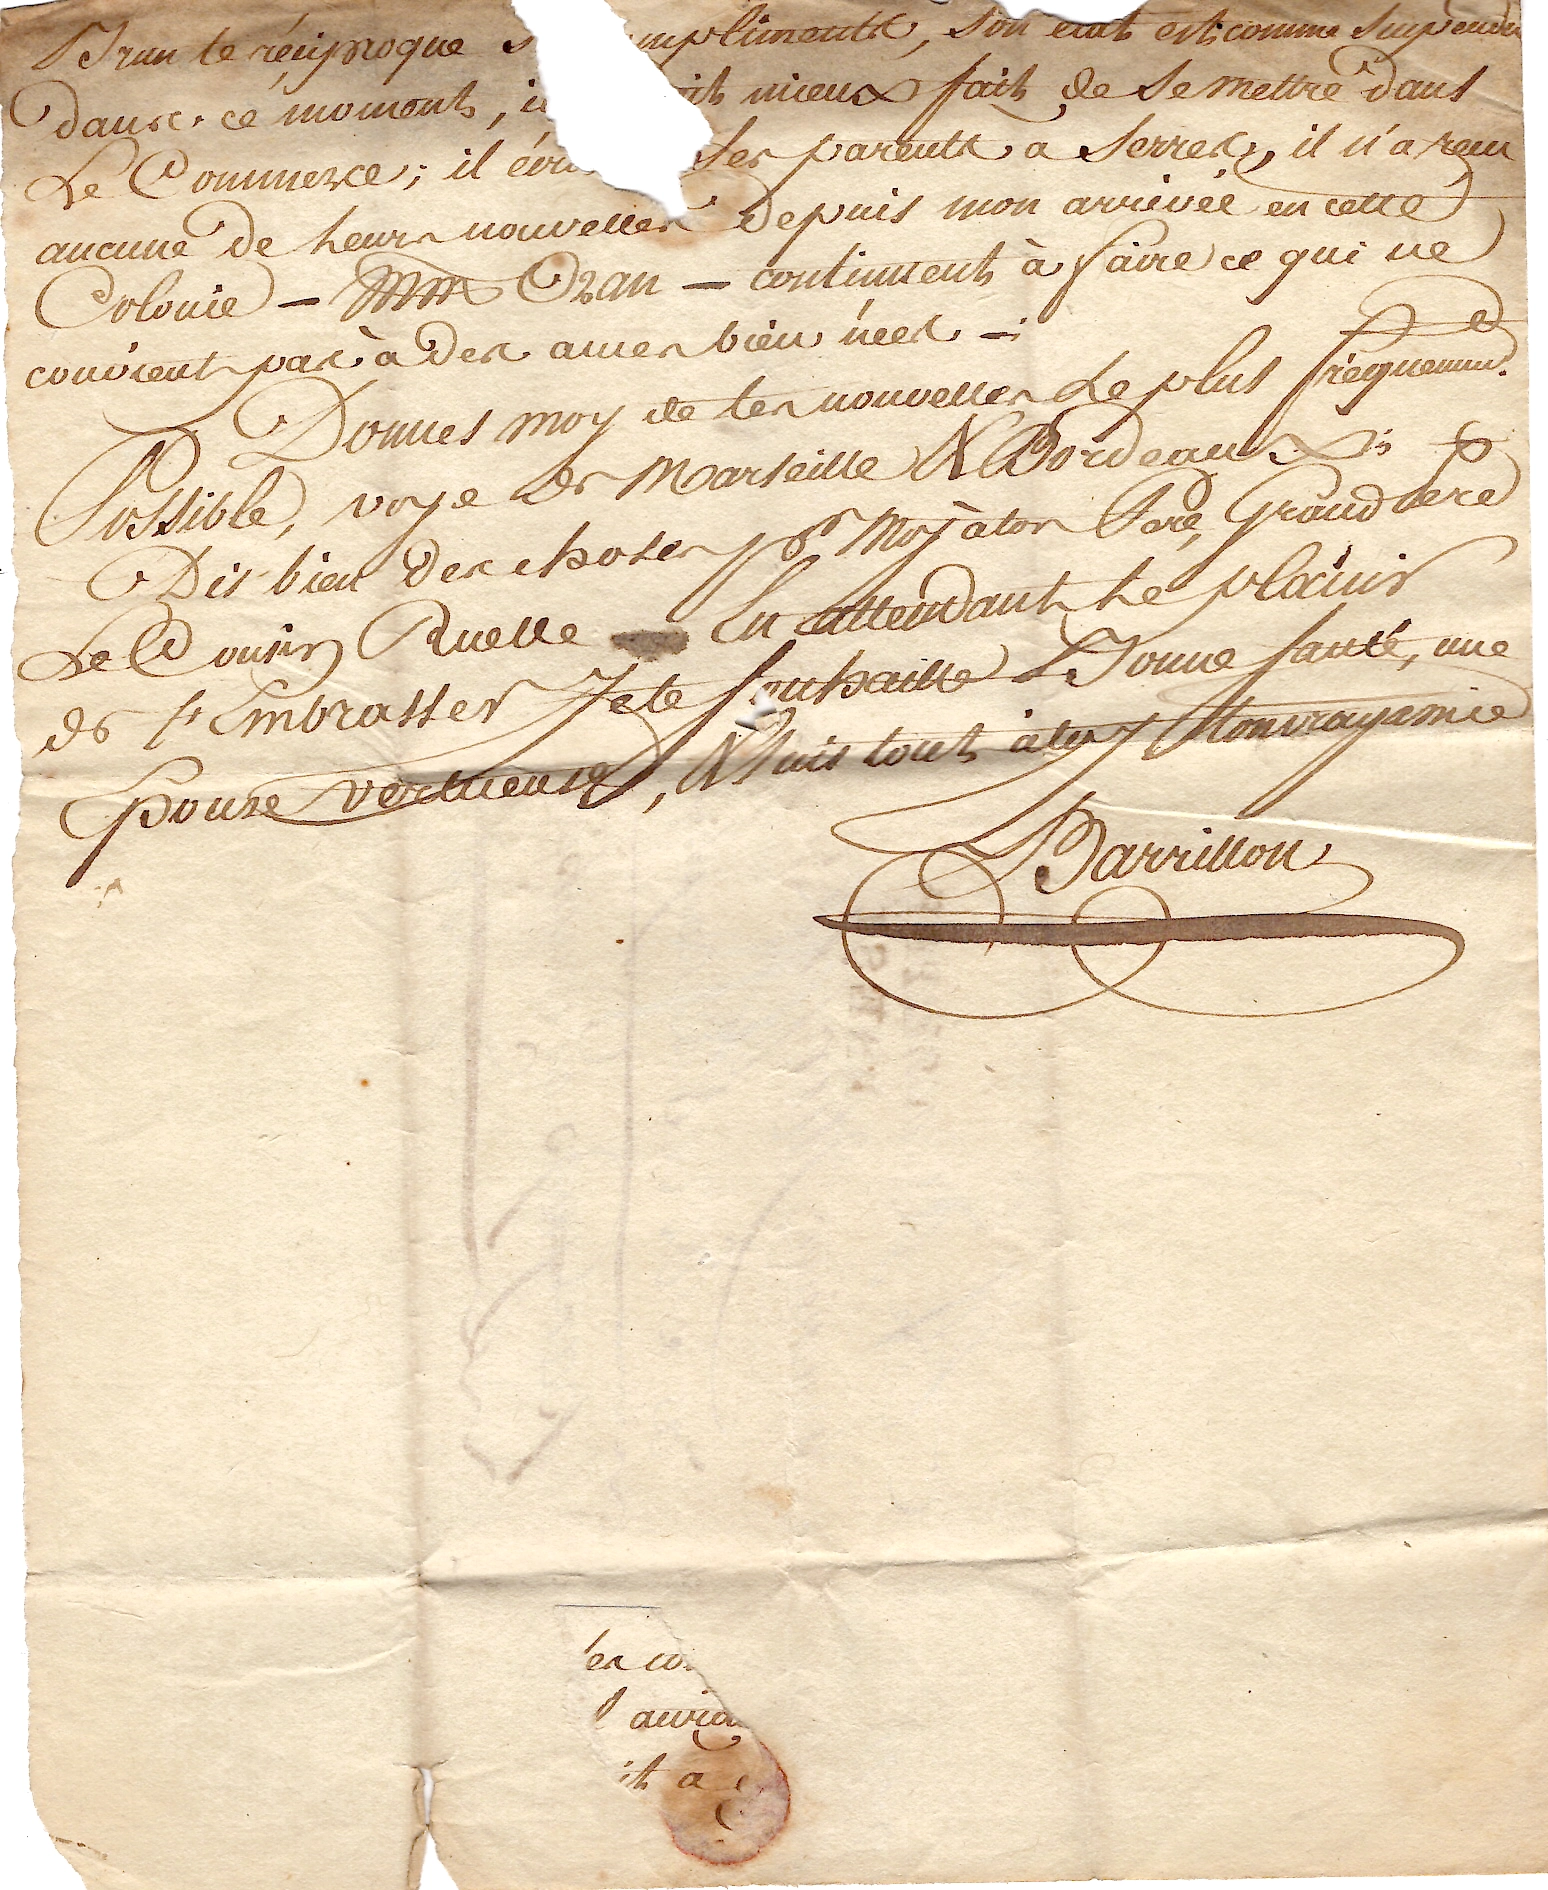 Brun te réciproque s mpliments, son état est comme suspendu
dans ce moment, il oit mieux fait de se mettre dans
Le Commerce; il écri ses parents a Serres, il n'a recu
aucune de leurs nouvelles depuis mon arrivée en cette
Colonie — MM Ozan — continuent à faire ce qui ne
convient pas à des ames bien nées —
Donnes moy de tes nouvelles le plus fréquemmt.
Possible, voye de Marseille & Bordeaux
Dis bien des choses pr Moy à ton Pere, Grand Pere
Le Cousin Ruelle En attendant le plaisir
de t'Embrasser Je te souhaitte Bonne santé, une
Epouse vertueuse, & suis tout à toy Ton vray amie
Barrillon
es co
it a